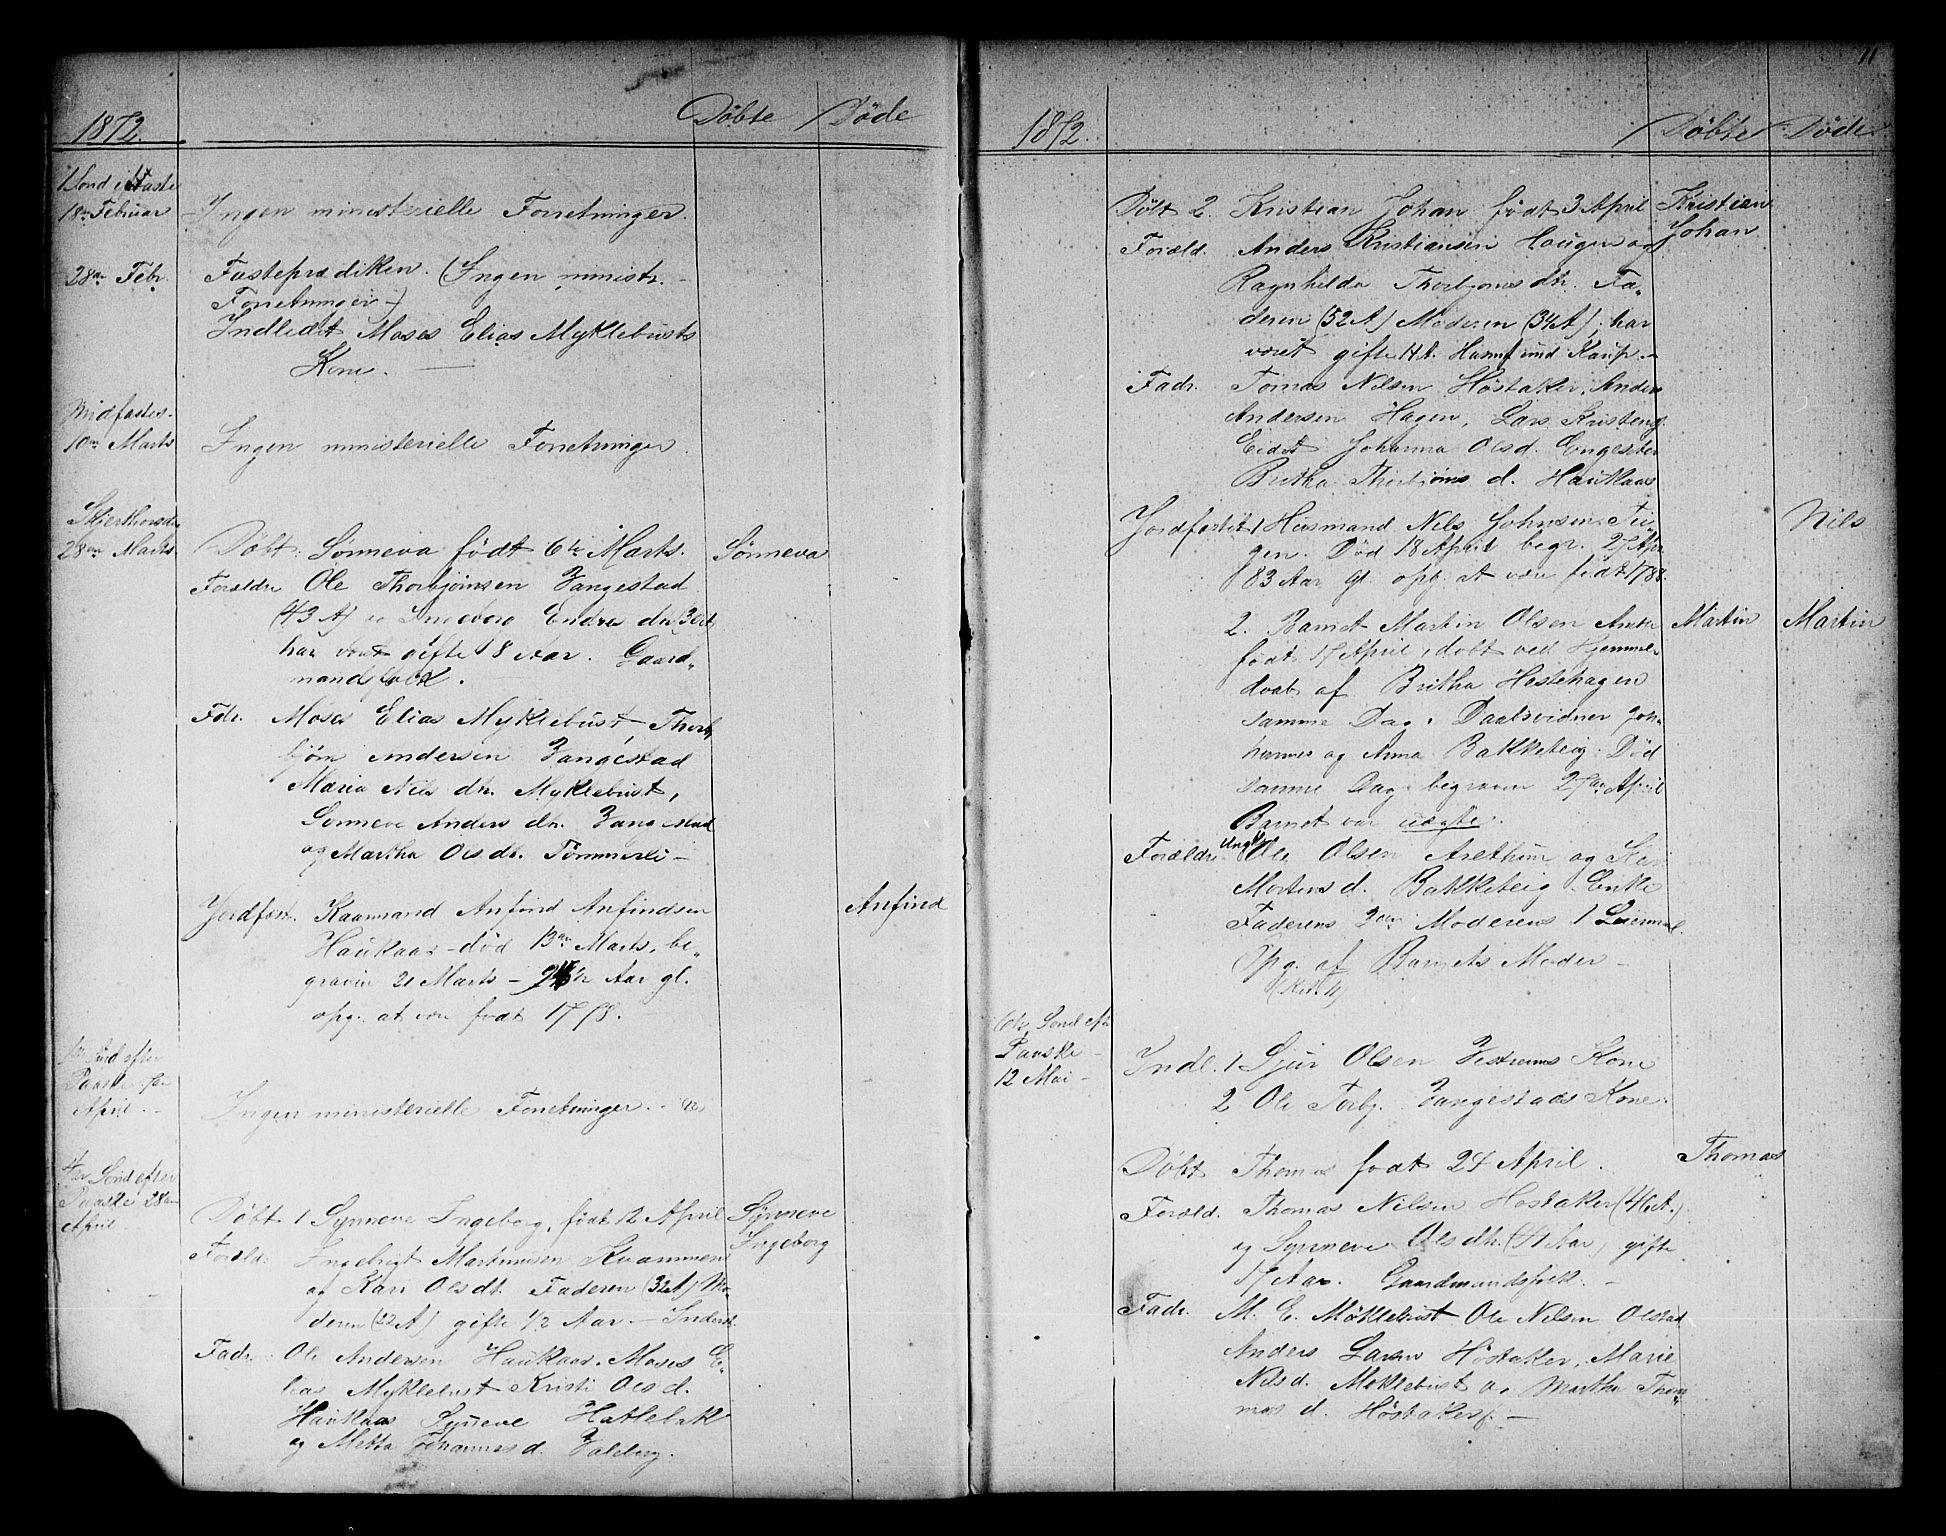 1872. Döbte Döde
1 Sond i Faste
18de Februar Ingen ministerielle Forretninger.
28de Febr. Fasteprædiken. (Ingen ministr.
Forretninger -)
Indledet Moses Elias Myklebusts
Kone. —
Midfastes-
10de Marts Ingen ministerielle Forretninger.
Skjerthorsda
28de Marts. Döbt. Sønneva født 6te Marts. Sønneva
Forældre Ole Thorbjørnsen Vangestad
(43 A) og Ingeborg Endres dtr
har været gifte 18 Aar. Gaard-
mandsfolk.
Fdr. Moses Elias Myklebust, Thorb-
jørn Andersen Vangestad
Maria Nils dtr. Myklebust,
Sønneve Anders dtr. Vangestad
og Martha Olsdtr. Tømmerli -
Jordfæst. Kaarmand Anfind Anfindsen Anfind
Haukaas - død 13de Marts, be-
graven 21 Marts - Aar gl.
opg. at være født 1778.
Sond efter
Paaske
April. - Ingen ministerielle Forretninger.
4de Sond efter
Paaske 28de
April Döbt 1 Synneve Ingeborg, født 12 April Synneve
Foræld. Ingebrigt Martinusen Kvammen Ingeborg
og Kari Olsdt. Faderen (32 A) Mo-
deren (22 A) gifte 1/2 Aar. - Inderst.
Fadr. Ole Andersen Haukaas. Moses E-
lias Myklebust Kristi Olsd.
Haukaas Synneve Hatlebak
og Metta Johannesd. Valeberg.
11
1872. Döbte Döde
Döbt 2. Kristian Johan født 3 April Kristian
Foræld. Anders Kristiansen Haugen og Johan
Ragnhilda Thorbjørns dtr. Fa-
deren (52 A) Moderen (34 A), har
været gifte 11 A. Husmf und Kaup. -
Fadr. Tomas Nilsen Høstaker. Anders
Andersen Hagen, Lars Kristens.
Eidet Johanna Olsd. Engeseter
Britha Thorbjørns d. Haukaas
Jordfæstet 1 Husmand Nels Johnsen Tei- Nils
gen. Død 18 April begr. 27 Apr.
83 Aar gl. opg. at være født 1788.
2. Barnet Martin Olsen Martin Martin
født 17 April, døbt ved Hjemme-
daab af Britha Hestehagen
samme Dag. Daabsvidner Joh-
hannes og Anna Bakketeig. Død
samme Dag begraven 27de April
Barnet var uægte.
Forældre Ungk. Ole Olsen Aréthun og
Mortens d. Bakketeig Enke
Faderens 2den Moderens 1 Leiermaal.
Opg. af Barnets Moder -
6te Sond eft.
Paaske -
12 Mai - Indl. 1 Sjur Olsen Vestrems Kone
2 Ole Torbj. Vangestads Kone.
Döbt Thomas født 24 April. Thomas
Foræld. Thomas Nilsen Høstaker (46 A.)
og Synneve Ols dtr. (41 Aar) gifte
17 Aar. Gaardmandsfolk. -
Fadr. M. E. Møklebust Ole Nilsen Olstad
Anders Larsen Høstaker, Marie
Nilsd. Møklebust og Martha Thom-
mas d. Høstaker. -